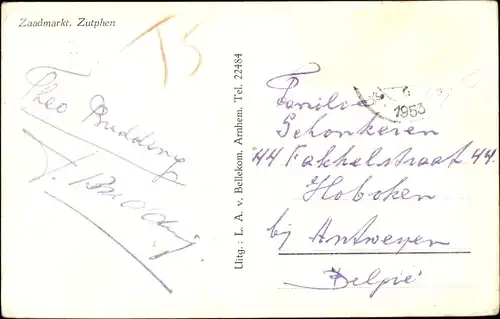 Zaadmarkt. Zutphen
TS
Theo Budding
T. Budding
Uitg.: L. A. v. Bellekom, Arnhem. Tel. 22484
1953
Familie
Schonkeren
44 Fakkelstraat 44
Hoboken
bij Antwerpen
België